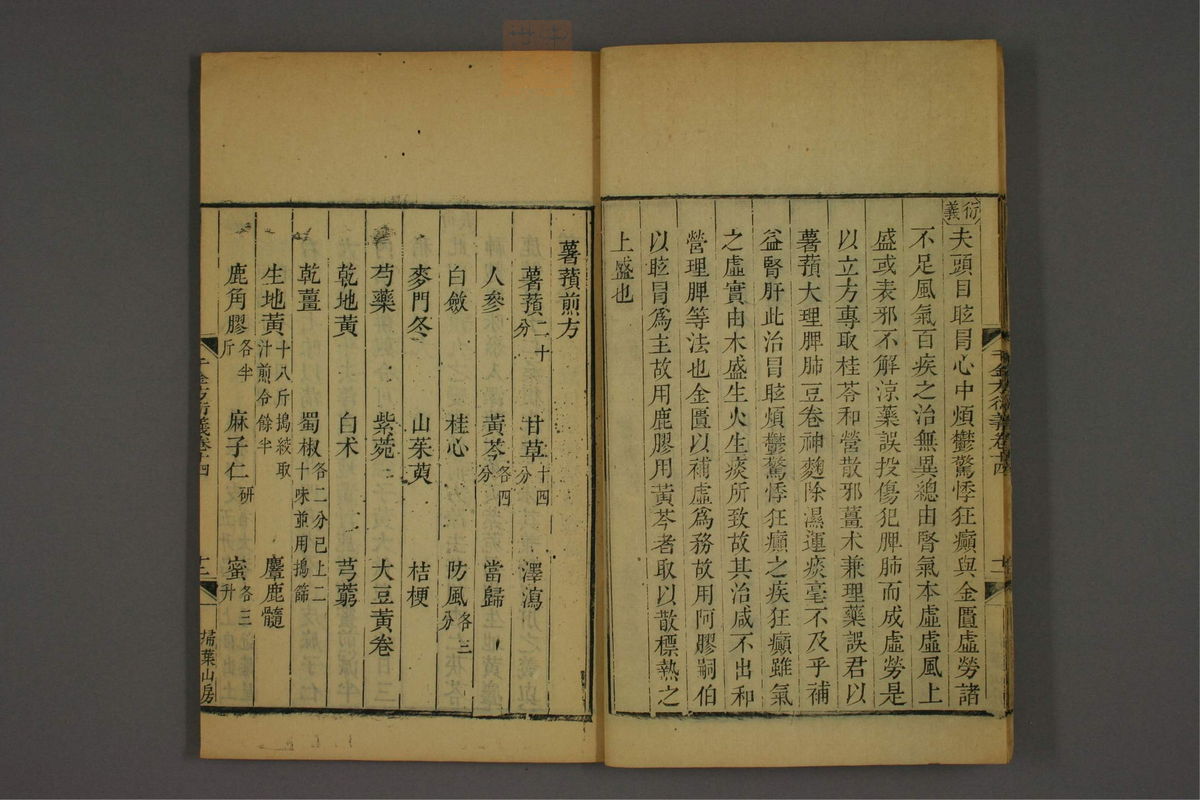 衍義
夫頭目眩冒心中煩鬱驚悸狂癲與金匱虛勞諸
不足風氣百疾之治無異總由腎氣本虛虛風上
盛或表邪不解涼藥誤投傷犯脾肺而成虛勞是
以立方專取桂苓和營散邪薑朮兼理藥誤君以
薯蕷大理脾肺豆卷神麴除濕運痰毫不及乎補
益腎肝此治冒眩煩鬱驚悸狂癲之疾狂癲雖氣
之虛實由木盛生火生痰所致故其治咸不出和
營理脾等法也金匱以補虛爲務故用阿膠嗣伯
以眩冒爲主故用鹿膠用黃芩者取以散標熱之
上盛也
千金方衍義卷十四
薯蕷煎方
薯蕷二十分 甘草十四分 澤瀉
人參 黃芩各四分 當歸
白斂 桂心 防風各三分
麥門冬 山茱萸 桔梗
芍藥 紫菀 大豆黃卷
乾地黃 白朮 芎藭
乾薑 蜀椒各二分已上二十味並用搗篩
生地黃十八斤搗絞取汁煎令餘半 麞鹿髓
鹿角膠各半斤 麻子仁研 蜜各三升
千金方衍義卷十四
十二
掃葉山房